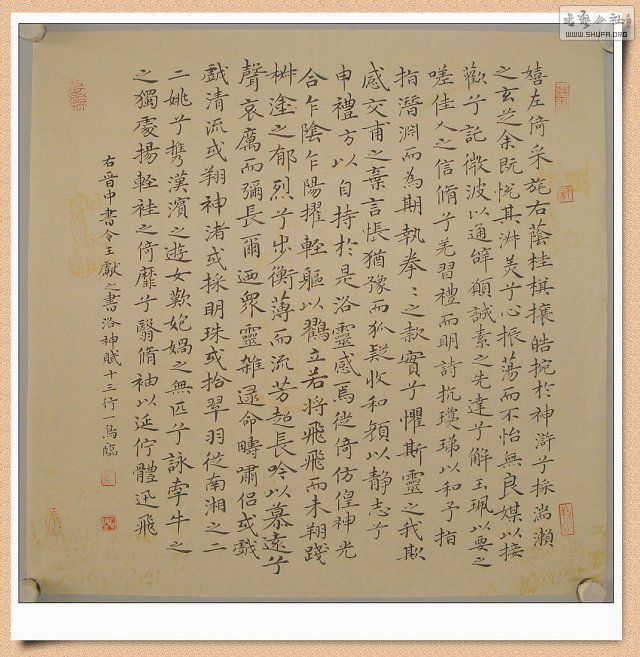 嬉左倚采旄右蔭桂棋攘皓捥於神滸兮採湍瀨
之玄芝余既悅其淋美兮心振蕩而不怡無良媒以接
歡兮託微波以通辤願誠素之先達兮解玉珮以要之
嗟佳人之信脩兮羌習禮而明詩抗瓊珶以和予指
指潛淵而為期執拳〻之款實兮懼斯靈之我欺
感交甫之棄言悵猶豫而狐疑收和顏以静志兮
申禮方以自持於是洛靈感焉徙倚仿偟神光
合乍陰乍陽擢輕軀以鶴立若將飛飛而未翔踐
椒塗之郁烈兮步衡薄而流芳超長吟以慕遠兮
聲哀厲而彌長爾迺衆靈雜遝命疇嘯侶或戲
戲清流或翔神渚或採明珠或拾翠羽從南湘之二
二姚兮攜漢濱之遊女歎媧之無匹兮詠牽牛之
之獨處揚輕袿之倚靡兮翳脩袖以延佇體迅飛
右晉中書令王獻之書洛神賦十三行一馬臨
书艺公社
WWW.SHUFA.ORG